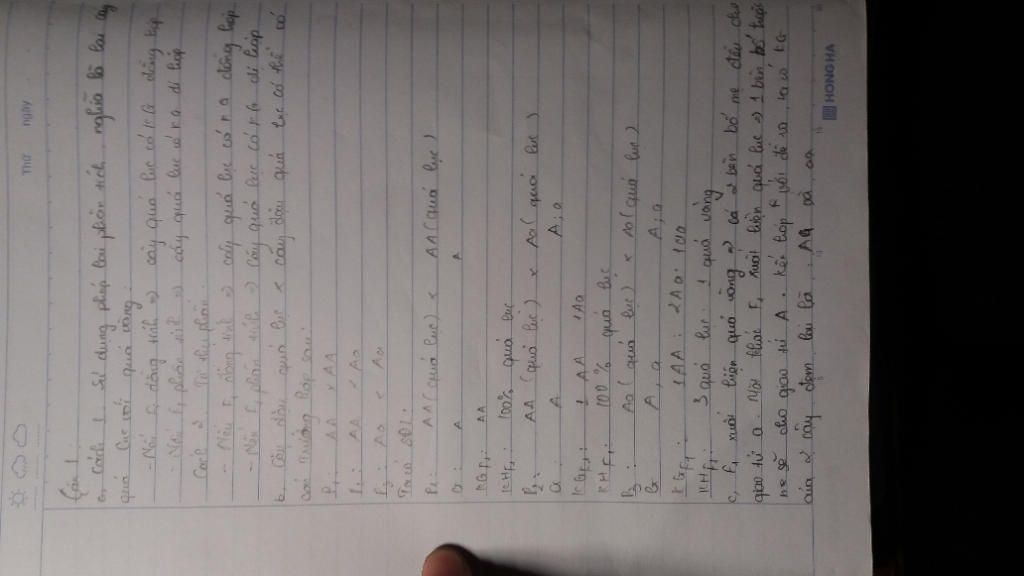 Thứ
ngày
Câu 1.
a, Cách 1. Sử dụng phép lai phân tích. nghĩa là lai cây
quả lục với quả vàng.
- Nếu F1 đồng tính => cây quả lục có KG đồng hợp
- Nếu F1 phân tính => cây quả lục có KG dị hợp
Cách 2. Tự thụ phấn.
- Nếu F1 đồng tính => cây quả lục có KG đồng hợp.
- Nếu F1 phân tính => cây quả lục có KG dị hợp
b. Cây dâu quả lục x cây dâu quả lục có thể có
các trường hợp sau:
P1: AA x AA
P: AA x Aa
P3: Aa x Aa
P1: AA (quả lục) x AA (quả lục)
G: A A
KGF1: AA
KHF1: 100% quả lục
P2: AA (quả lục) x Aa (quả lục)
G: A A; a
KGF1: 1 AA 1Aa
KHF1: 100% quả lục
P3: Aa (quả lục) x Aa (quả lục)
G: A, a A; a
KGF1: 1AA: 2Aa: 1aa
KHF1: 3 quả lục: 1 quả vàng
c, F1 xuất hiện quả vàng => cả 2 bên bố mẹ đều cho
giao tử a. Mặt khác F1 xuất hiện quả lục => 1 bên bố hoặc
mẹ sẽ cho giao tử A. Kết hợp lại để suy ra có KG
của 2 cây đem lai là: Aa và aa
HONG HA